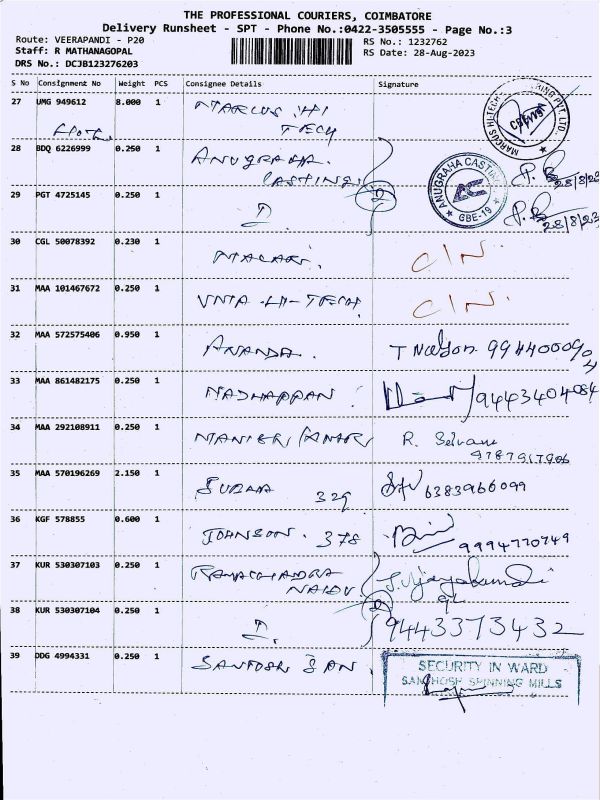 THE PROFESSIONAL COURIERS, COIMBATORE
Delivery Runsheet - SPT - Phone No.:0422-3505555 - Page No.:3
Route: VEERAPANDI - P20
RS No.: 1232762
Staff: R MATHANAGOPAL
RS Date: 28-Aug-2023
DRS No.: DCJB123276203
S No Consignment No Weight PCS Consignee Details Signature
27 UMG 949612 8.000 1 MARCUS HI
TECH
MARCUS HITECH PVT. LTD.
28 BDQ 6226999 0.250 1 ANUGRAHA
CASTINGS
ANUGRAHA CASTINGS
CBE-19
28/8/23
29 PGT 4725145 0.250 1
28/8/23
30 CGL 50078392 0.230 1
31 MAA 101467672 0.250 1 HI-TECH
32 MAA 572575406 0.950 1 ANANDA
33 MAA 861482175 0.250 1 9443404084
34 MAA 292108911 0.250 1 R. Selvam
35 MAA 570196269 2.150 1 329 6383966099
36 KGF 578855 0.600 1 JOHNSON. 378 9994770749
37 KUR 530307103 0.250 1 RAMACHANDRA
NAIDU
38 KUR 530307104 0.250 1 9443373432
39 DDG 4994331 0.250 1 SANTOSH
SECURITY IN WARD
SANTHOSH SPINNING MILLS